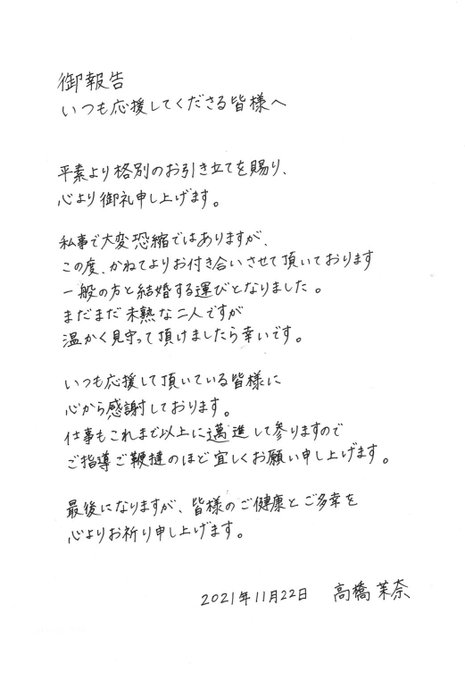 御報告
いつも応援してくださる皆様へ
平素より格別のお引き立てを賜り、
心より御礼申し上げます。
私事で大変恐縮ではありますが、
この度、かねてよりお付き合いさせて頂いております
一般の方と結婚する運びとなりました。
まだまだ未熟な二人ですが
温かく見守って頂けましたら幸いです。
いつも応援して頂いている皆様に
心から感謝しております。
仕事もこれまで以上に邁進して参りますので
ご指導ご鞭撻のほど宜しくお願い申し上げます。
最後になりますが、皆様のご健康とご多幸を
心よりお祈り申し上げます。
2021年11月22日 高橋茉奈